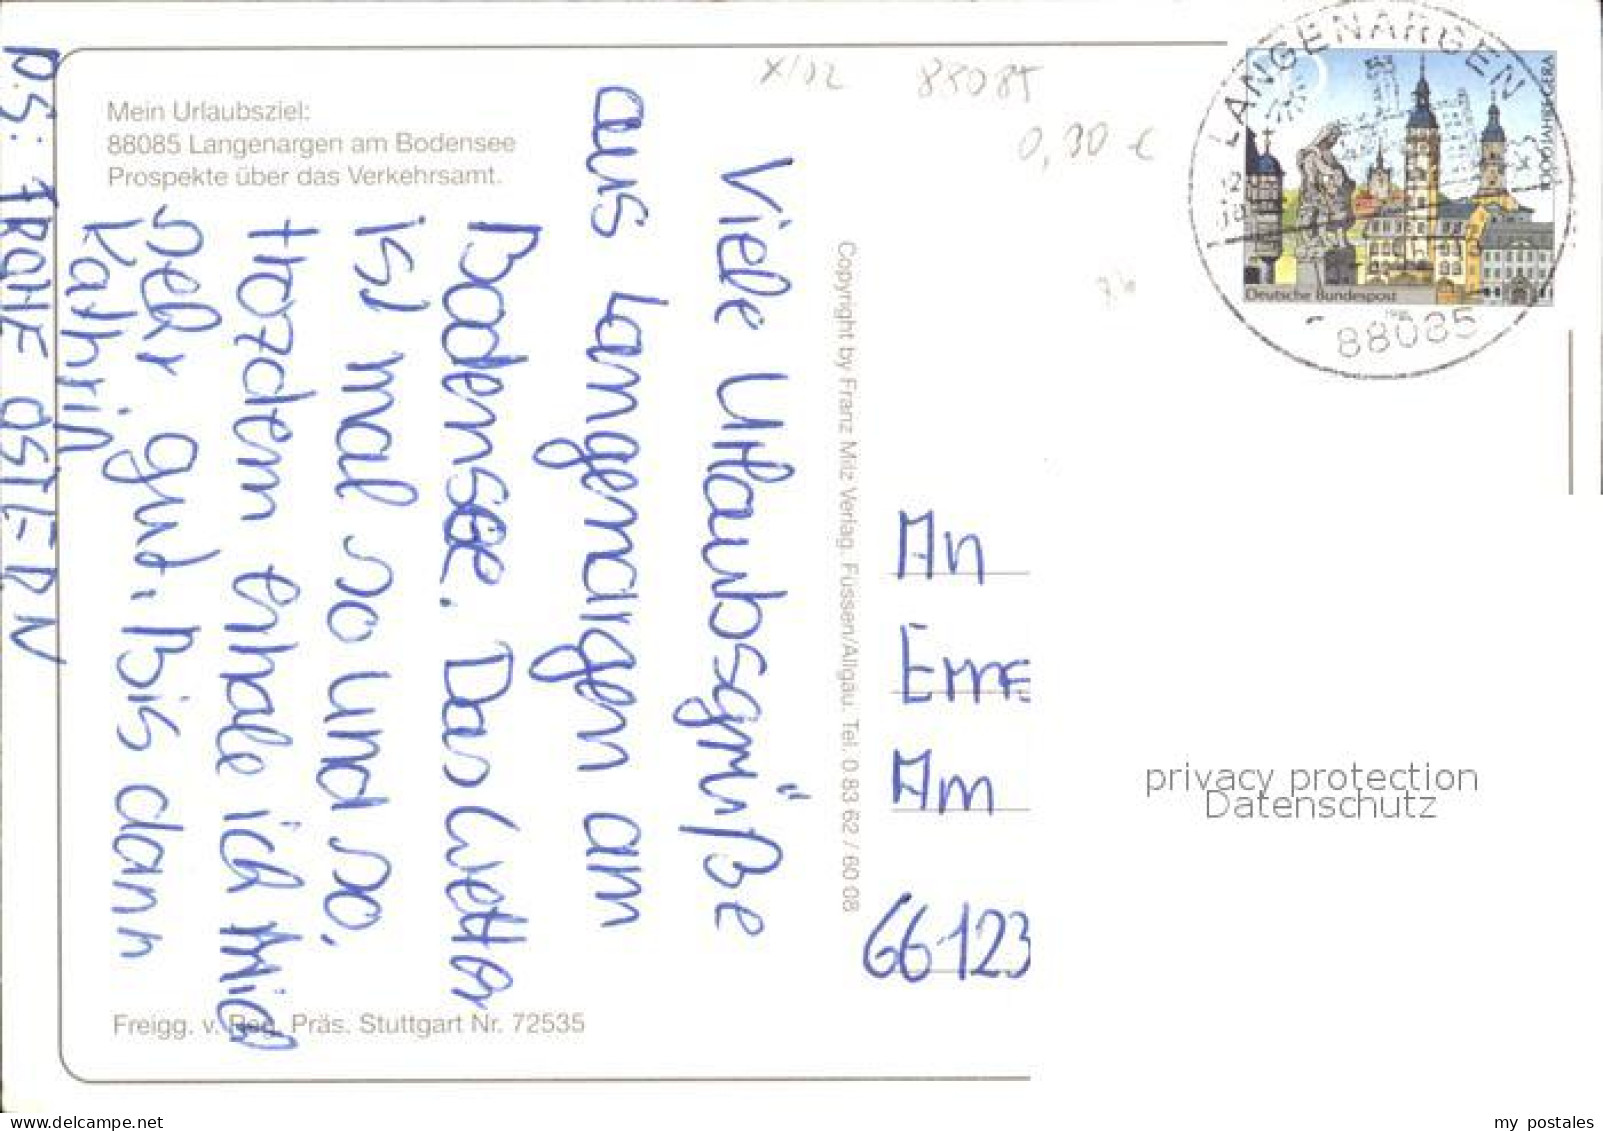 Mein Urlaubsziel:
88085 Langenargen am Bodensee
Prospekte über das Verkehrsamt.
Viele Urlaubsgrüße
aus Langenargen am
Bodensee. Das Wetter
ist mal so und so.
trozdem erhole ich mich
sehr gut. Bis dann
Kathrin
P.S: FROHE OSTERN
Freigg. v. Reg. Präs. Stuttgart Nr. 72535
Copyright by Franz Milz Verlag. Füssen/Allgäu. Tel. 0 83 62 / 60 08
X/02
88085
0,30 €
LANGENARGEN
88085
1000 JAHRE GERA
Deutsche Bundespost
An
Am
66123
privacy protection
Datenschutz
delcampe.net
my postales